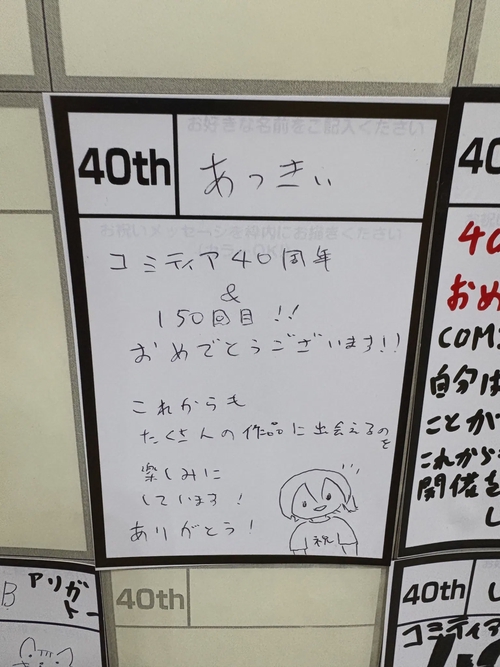 お好きな名前をご記入ください
40th
あっきぃ
お祝いメッセージを枠内にお描きください
コミティア40周年
&
150回目!!
おめでとうございます!!
これからも
たくさんの作品に出会えるのを
楽しみに
しています!
ありがとう!
祝
40
おめ
COM
自分は
ことが
これから
開催を
し
B
アリガ
トー
40th
40th
コミティア